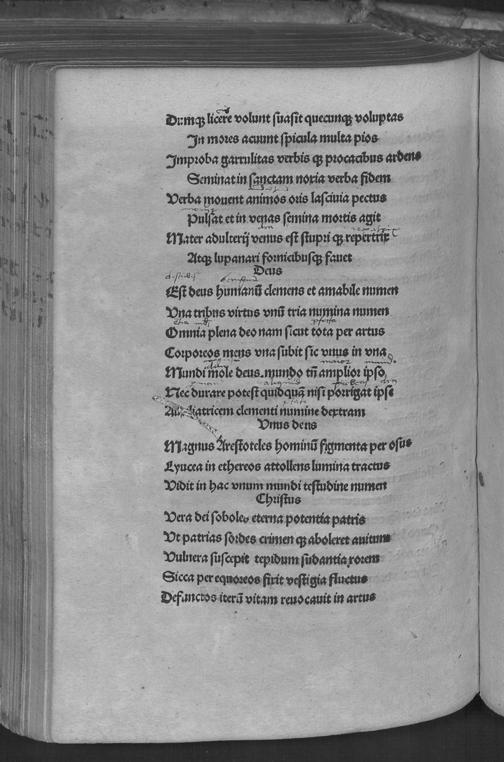 Dumq; licere volunt suasit quecunq; voluptas
In mores acuunt spicula multa pios
Improba garrulitas verbis q; procacibus ardens
Seminat in sanctam noxia verba fidem
Verba mouent animos oris lasciuia pectus
Pulsat et in venas semina mortis agit
Mater adulterij venus est stupri q; repertrix
Atq; lupanari fornicibusq; fauet
Deus
Est deus humanū clemens et amabile numen
Vna tribus virtus vnū tria numina numen
Omnia plena deo nam sicut tota per artus
Corporeos mens vna subit sic vnus in vna
Mundi mole deus. mundo tñ amplior ipso
Nec durare potest quidquā nisi porrigat ipse
clementi numine dextram
Vnus deus
Magnus Arestoteles hominū figmenta per osus
Lyucea in ethereos attollens lumina tractus
Vidit in hac vnum mundi testudine numen
Christus
Vera dei soboles eterna potentia patris
Vt patrias sordes crimen q; aboleret auitum
Vulnera suscepit tepidum sudantia rorem
Sicca per equoreos fixit vestigia fluctus
Defunctos iterū vitam reuocauit in artus